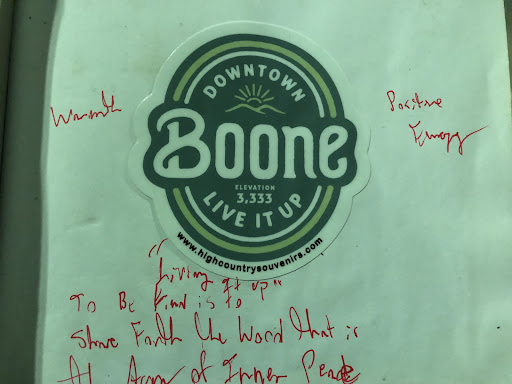 DOWNTOWN
Warmth
Positive
Energy
Boone
ELEVATION
3,333
LIVE IT UP
www.highcountrysouvenirs.com
"Living It up"
To Be Kind is to
Share Faith the Word that is
of Inner Peace